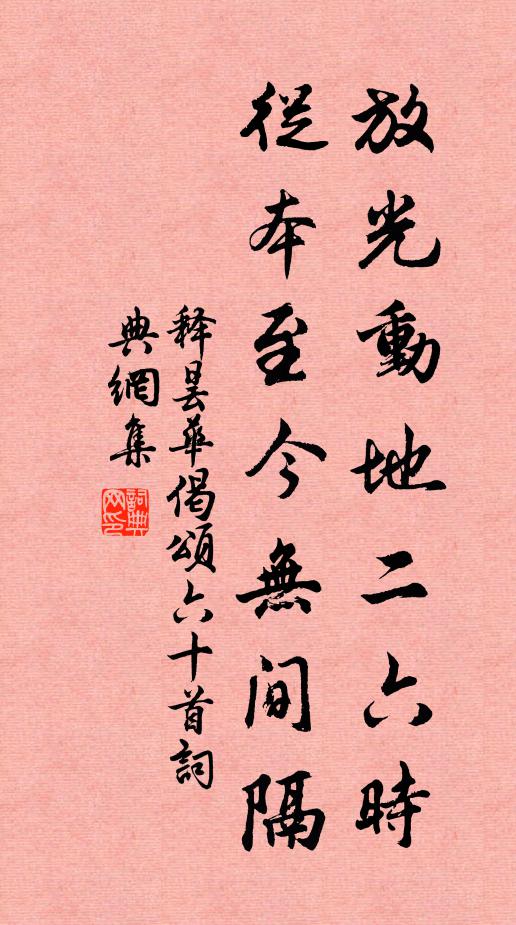 放光動地二六時
從本至今無間隔
释曇華偈頌六十首詞
典網集
詞典網印